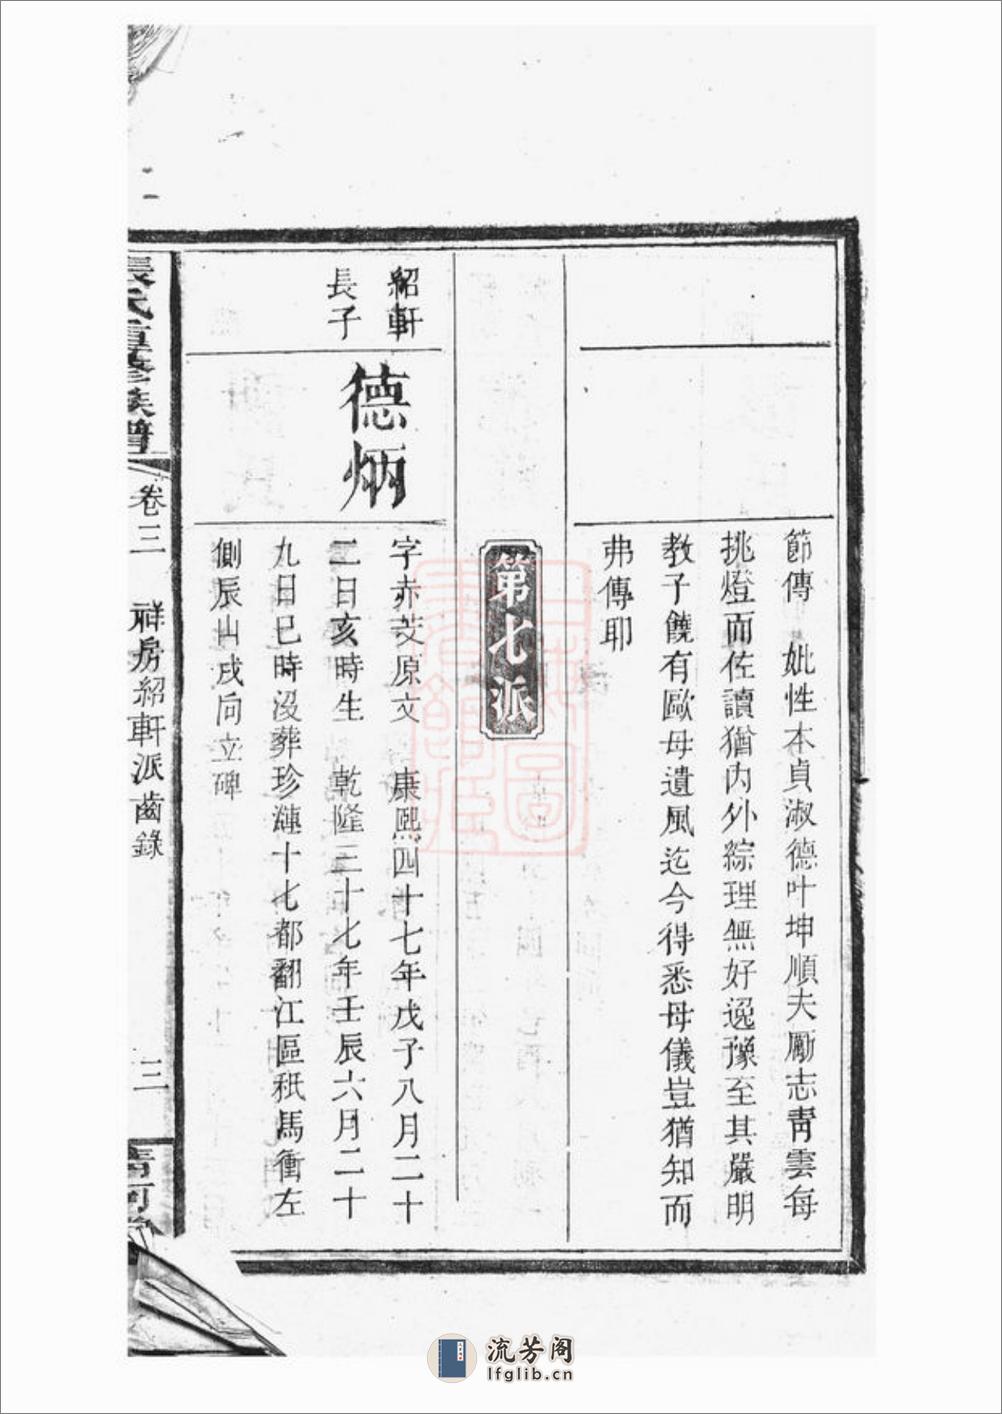 節傳　妣性本貞淑德叶坤順夫勵志靑雲每
挑燈而佐讀猶內外綜理無好逸豫至其嚴明
教子饒有歐母遺風迄今得悉母儀豈猶知而
弗傳耶
第七派
紹軒
長子
德炳
字赤苂原文　康熙四十七年戊子八月二十
二日亥時生　乾隆三十七年壬辰六月二十
九日巳時沒葬珍漣十七都翻江區秖馬衝左
側辰山戌向立碑
張氏重修族譜
卷三
祥房紹軒派齒錄
三
流芳阁
lfglib.cn